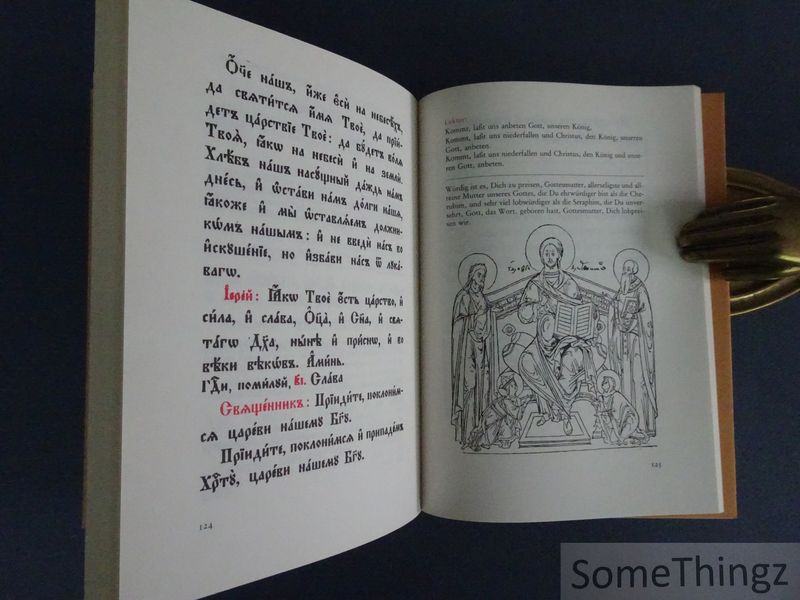 Ѻ҆́ч҃е на́шъ, и҆́же є҆сѝ на небесѣ́хъ,
да свѧти́тсѧ и҆́мѧ Твоѐ, да прїи́-
детъ ца́рствїе Твоѐ: да бꙋ́детъ во́лѧ
Твоѧ̀, ꙗ҆́кѡ на небесѝ и҆ на землѝ.
Хлѣ́бъ на́шъ насꙋ́щный да́ждь на́мъ
дне́сь, и҆ ѡ҆ста́ви на́мъ до́лги на́шѧ,
ꙗ҆́коже и҆ мы̀ ѡ҆ставлѧ́емъ должни-
кѡ́мъ на́шымъ: и҆ не введѝ на́съ во
и҆скꙋше́нїе, но и҆зба́ви на́съ ѿ лꙋка́-
вагѡ.
І҆ере́й: Ꙗ҆́кѡ Твоѐ є҆́сть ца́рство, и҆
си́ла, и҆ сла́ва, Ѻ҆ц҃а̀, и҆ Сн҃а, и҆ свѧ-
та́гѡ Дх҃а, ны́нѣ и҆ при́снѡ, и҆ во
вѣ́ки вѣкѡ́въ. А҆ми́нь.
Гдⷭ҇и, поми́лꙋй, в҃і. Сла́ва
Свѧще́нникъ: Прїиди́те, поклони́м-
сѧ царе́ви на́шемꙋ Бг҃ꙋ.
Прїиди́те, поклони́мсѧ и҆ припаде́мъ
Хрⷭ҇тꙋ̀, царе́ви на́шемꙋ Бг҃ꙋ.
124
Lektor:
Kommt, laßt uns anbeten Gott, unseren König,
Kommt, laßt uns niederfallen und Christus, den König, unseren
Gott, anbeten.
Kommt, laßt uns niederfallen und Christus, den König und unse-
ren Gott, anbeten.
Würdig ist es, Dich zu preisen, Gottesmutter, allerseligste und all-
reine Mutter unseres Gottes, die Du ehrwürdiger bist als die Che-
rubim, und sehr viel lobwürdiger als die Seraphim, die Du unver-
sehrt, Gott, das Wort, geboren hast, Gottesmutter, Dich lobprei-
sen wir.
125
SomeThingz